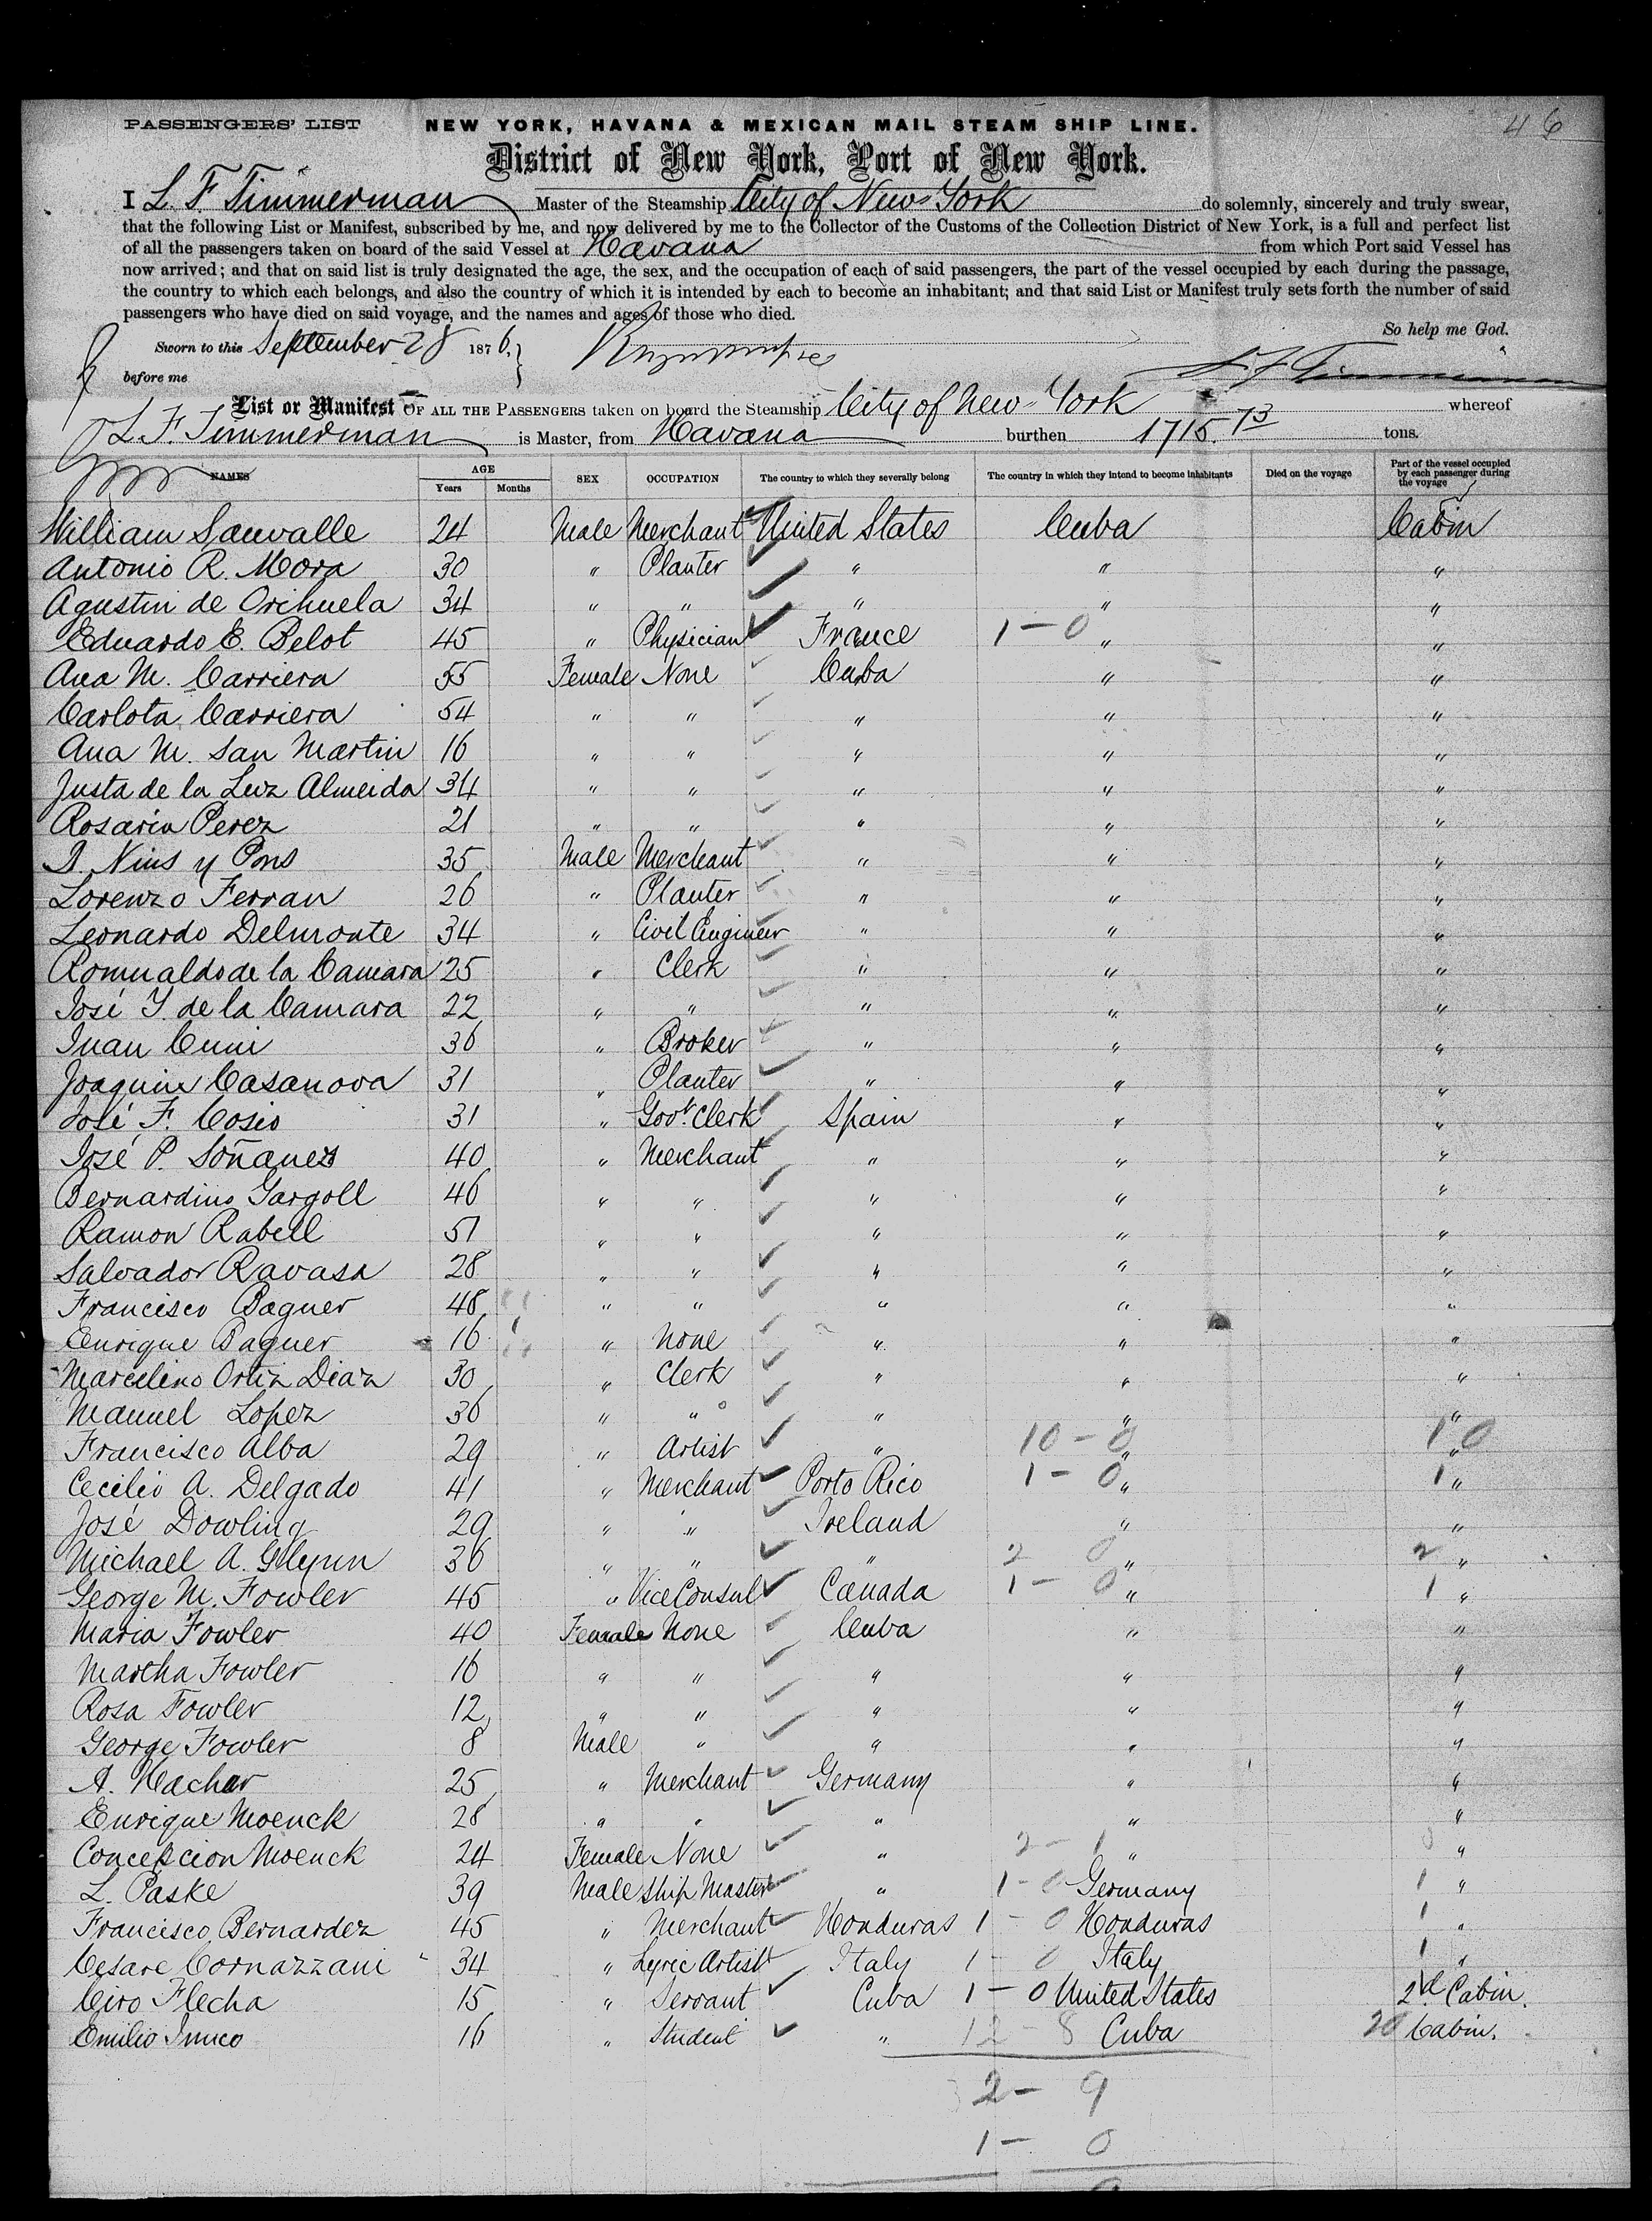 46
PASSENGERS' LIST NEW YORK, HAVANA & MEXICAN MAIL STEAM SHIP LINE.
District of New York, Port of New York.
I L. F. Timmerman Master of the Steamship City of New York do solemnly, sincerely and truly swear,
that the following List or Manifest, subscribed by me, and now delivered by me to the Collector of the Customs of the Collection District of New York, is a full and perfect list
of all the passengers taken on board of the said Vessel at Havana from which Port said Vessel has
now arrived; and that on said list is truly designated the age, the sex, and the occupation of each of said passengers, the part of the vessel occupied by each during the passage,
the country to which each belongs, and also the country of which it is intended by each to become an inhabitant; and that said List or Manifest truly sets forth the number of said
passengers who have died on said voyage, and the names and ages of those who died.
So help me God.
Sworn to this September 28 1876.
before me L F Timmerman
List or Manifest OF ALL THE PASSENGERS taken on board the Steamship City of New-York whereof
L. F. Timmerman is Master, from Havana burthen 1715.73 tons.
NAMES AGE Years Months SEX OCCUPATION The country to which they severally belong The country in which they intend to become inhabitants Died on the voyage Part of the vessel occupied by each passenger during the voyage
William Sauvalle 24 Male Merchant United States Cuba Cabin
Antonio R. Mora 30 " Planter " " "
Agustin de Orihuela 34 " " " " "
Eduardo E. Belot 45 " Physician France 1-0 " "
Ana M. Carriera 55 Female None Cuba " "
Carlota Carriera 54 " " " " "
Ana M. San Martin 16 " " " " "
Justa de la Luz Almeida 34 " " " " "
Rosaria Perez 21 " " " " "
Nins y Pons 35 Male Merchant " " "
Lorenzo Ferran 26 " Planter " " "
Leonardo Delmonte 34 " Civil Engineer " " "
Romualdo de la Camara 25 " Clerk " " "
José Y. de la Camara 22 " " " " "
Juan Cuni 36 " Broker " " "
Joaquin Casanova 31 " Planter " " "
José F. Cosio 31 " Govt. Clerk Spain " "
José P. Soñanes 40 " Merchant " " "
Bernardino Gargoll 46 " " " " "
Ramon Rabell 51 " " " " "
Salvador Ravasa 28 " " " " "
Francisco Baguer 48 " " " " "
Enrique Baguer 16 " None " " "
Marcelino Ortiz Diaz 30 " Clerk " " "
Manuel Lopez 36 " " " " "
Francisco Alba 29 " Artist " 10-0 " 10 "
Cecilio A. Delgado 41 " Merchant Porto Rico 1-0 " 1 "
José Dowling 29 " " Ireland " "
Michael A. Glynn 36 " " " 2 0 " 2 "
George M. Fowler 45 " Vice Consul Canada 1-0 " 1 "
Maria Fowler 40 Female None Cuba " "
Martha Fowler 16 " " " " "
Rosa Fowler 12 " " " " "
George Fowler 8 Male " " " "
A. Kachar 25 " Merchant Germany " "
Enrique Moenck 28 " " " " "
Concepcion Moenck 24 Female None " 2-1 " 3 "
L. Paske 39 Male Ship Master " 1-0 Germany 1 "
Francisco Bernardez 45 " Merchant Honduras 1-0 Honduras 1 "
Cesare Cornazzani 34 " Lyric Artist Italy 1-0 Italy 1 "
Ciro Flecha 15 " Servant Cuba 1-0 United States 2d Cabin.
Emilio 16 " Student " 12-8 Cuba 20 Cabin.
2-9
1-0